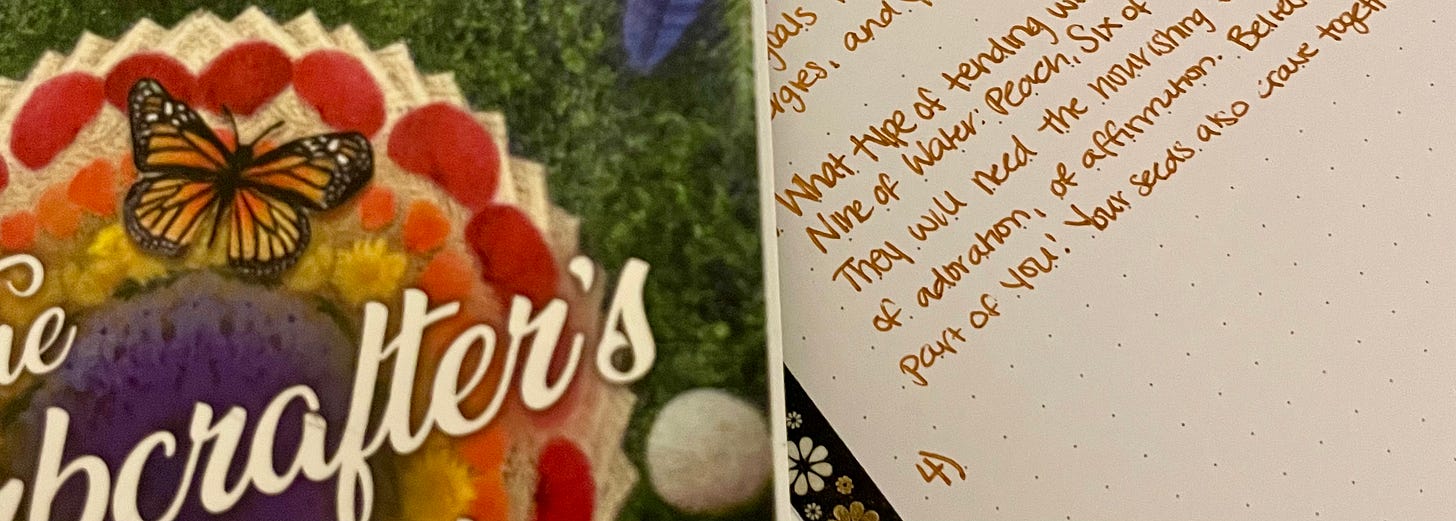 bcrafter's
goals
rgies, and
What type of tending w
Nine of Water: Peach, Six of
They will need the nourishing
of adoration, of affirmation. Belie
part of you! Your seeds also crave toget
4)